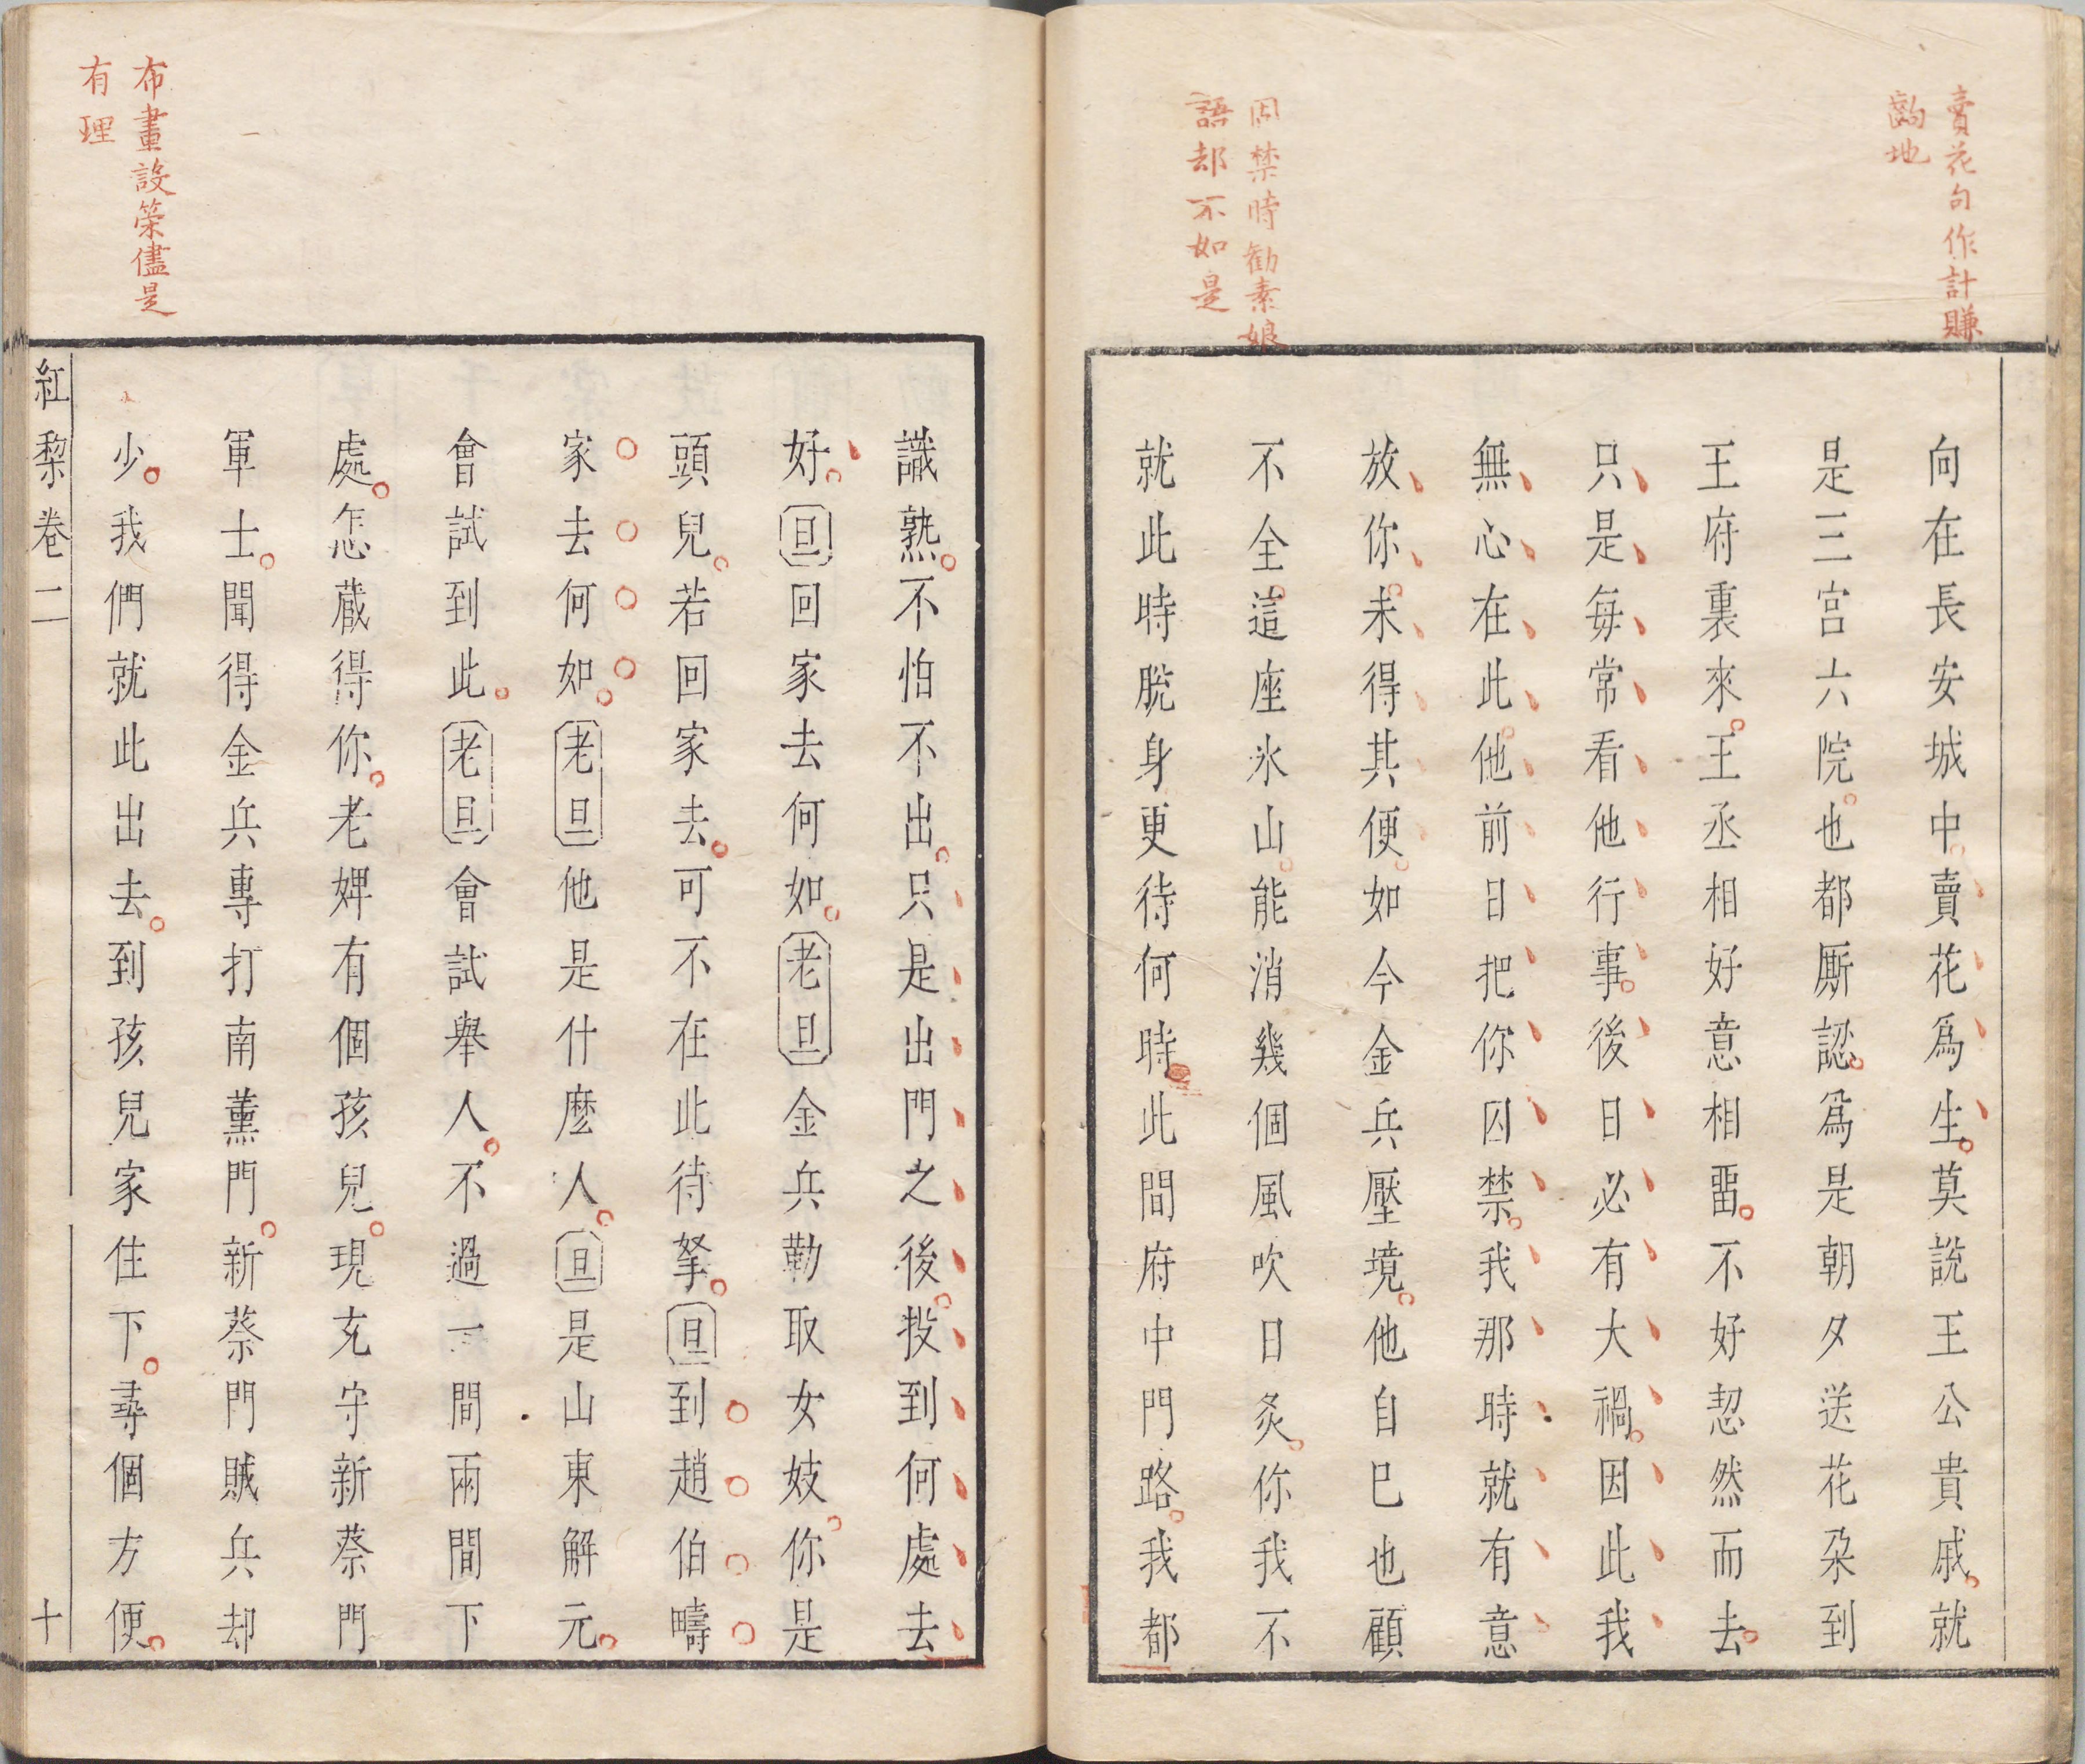 賣花句作計賺
齣地
因禁時勸素娘
語却不如是
向在長安城中賣花爲生莫說王公貴戚就
是三宮六院也都厮認爲是朝夕送花朶到
王府裏來王丞相好意相畱不好恝然而去
只是每常看他行事後日必有大禍因此我
無心在此他前日把你囚禁我那時就有意
放你未得其便如今金兵壓境他自巳也顧
不全這座氷山能消幾個風吹日炙你我不
就此時脫身更待何時此間府中門路我都
布畫設策儘是
有理
識熟不怕不出只是出門之後投到何處去
好旦回家去何如老旦金兵勒取女妓你是
頭兒若回家去可不在此待拏旦到趙伯疇
家去何如老旦他是什麽人旦是山東解元
會試到此老旦會試舉人不過一間兩間下
處怎蔵得你老婢有個孩兒現充守新蔡門
軍士聞得金兵專打南薰門新蔡門賊兵却
少我們就此出去到孩兒家住下尋個方便
紅梨卷二 十